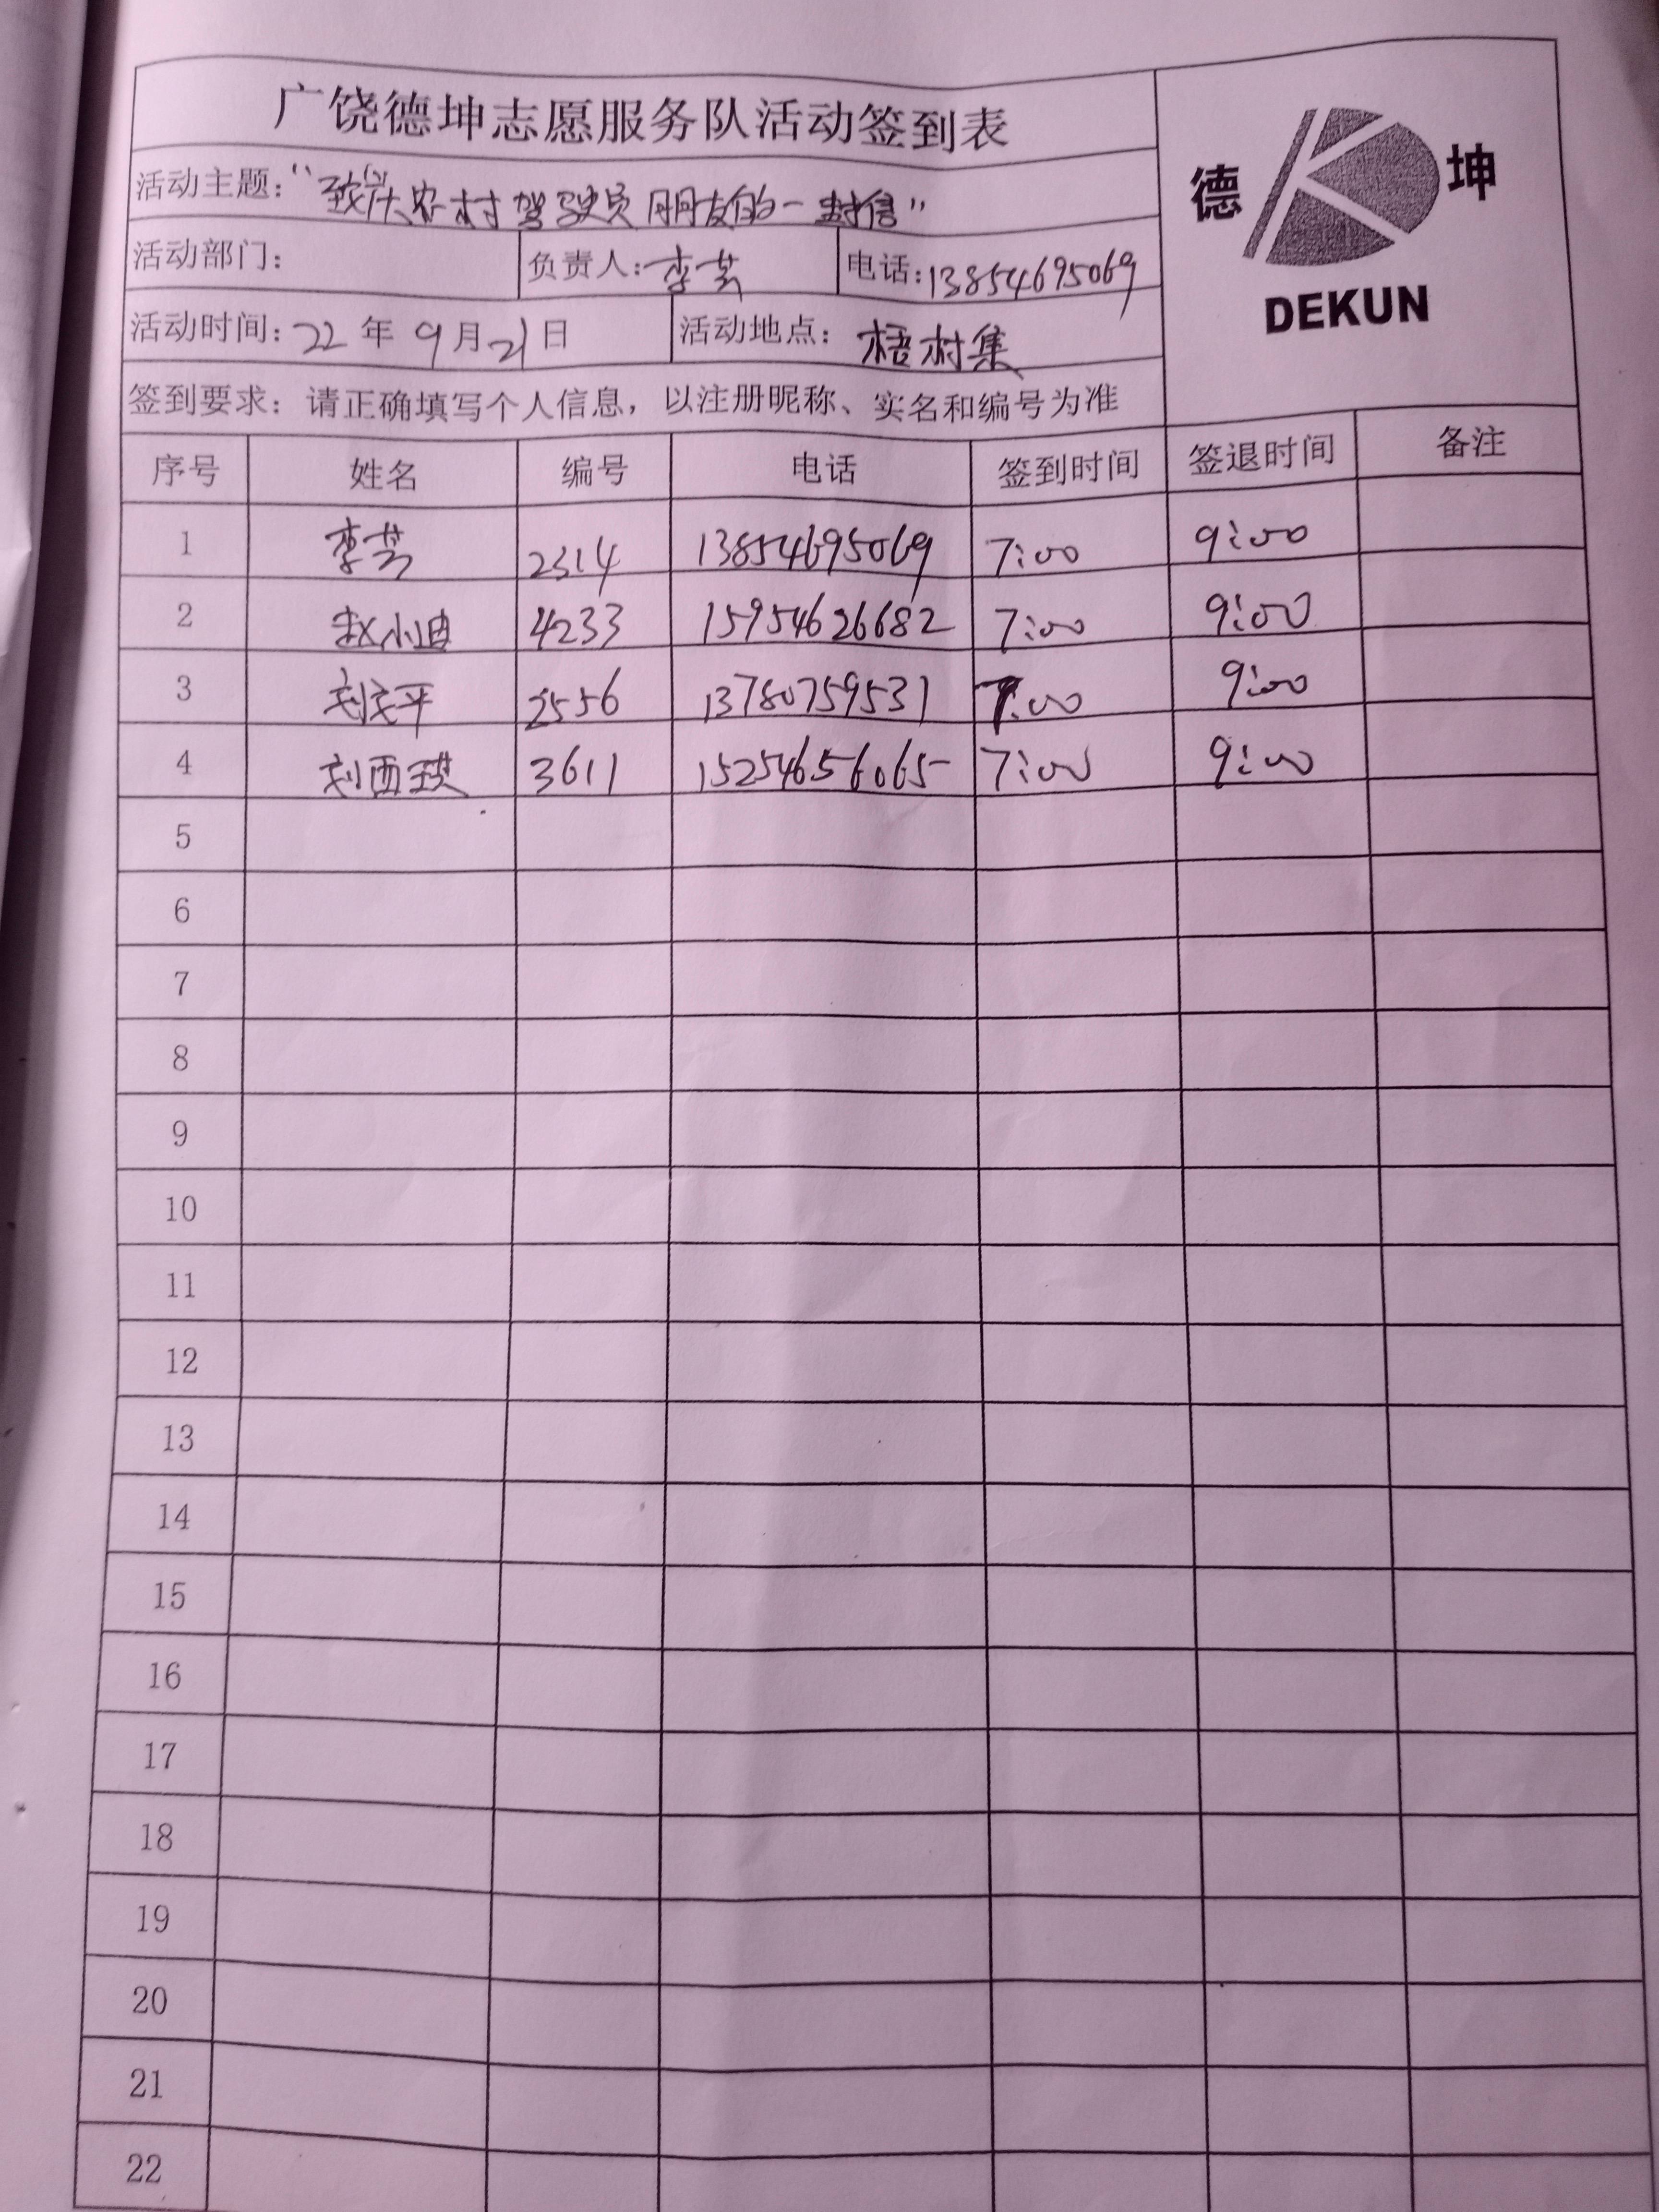 广饶德坤志愿服务队活动签到表
德 坤
DEKUN
活动主题:“致广大农村驾驶员朋友的一封信”
活动部门: 负责人:李芸 电话:13854695069
活动时间:22年9月21日 活动地点: 梧村集
签到要求: 请正确填写个人信息，以注册昵称、实名和编号为准
序号 姓名 编号 电话 签到时间 签退时间 备注
1 李芸 2314 13854695069 7:00 9:00
2 赵小迪 4233 15954626682 7:00 9:00
3 刘 平 2556 13780759531 7:00 9:00
4 刘西 3611 15254656065 7:00 9:00
5
6
7
8
9
10
11
12
13
14
15
16
17
18
19
20
21
22